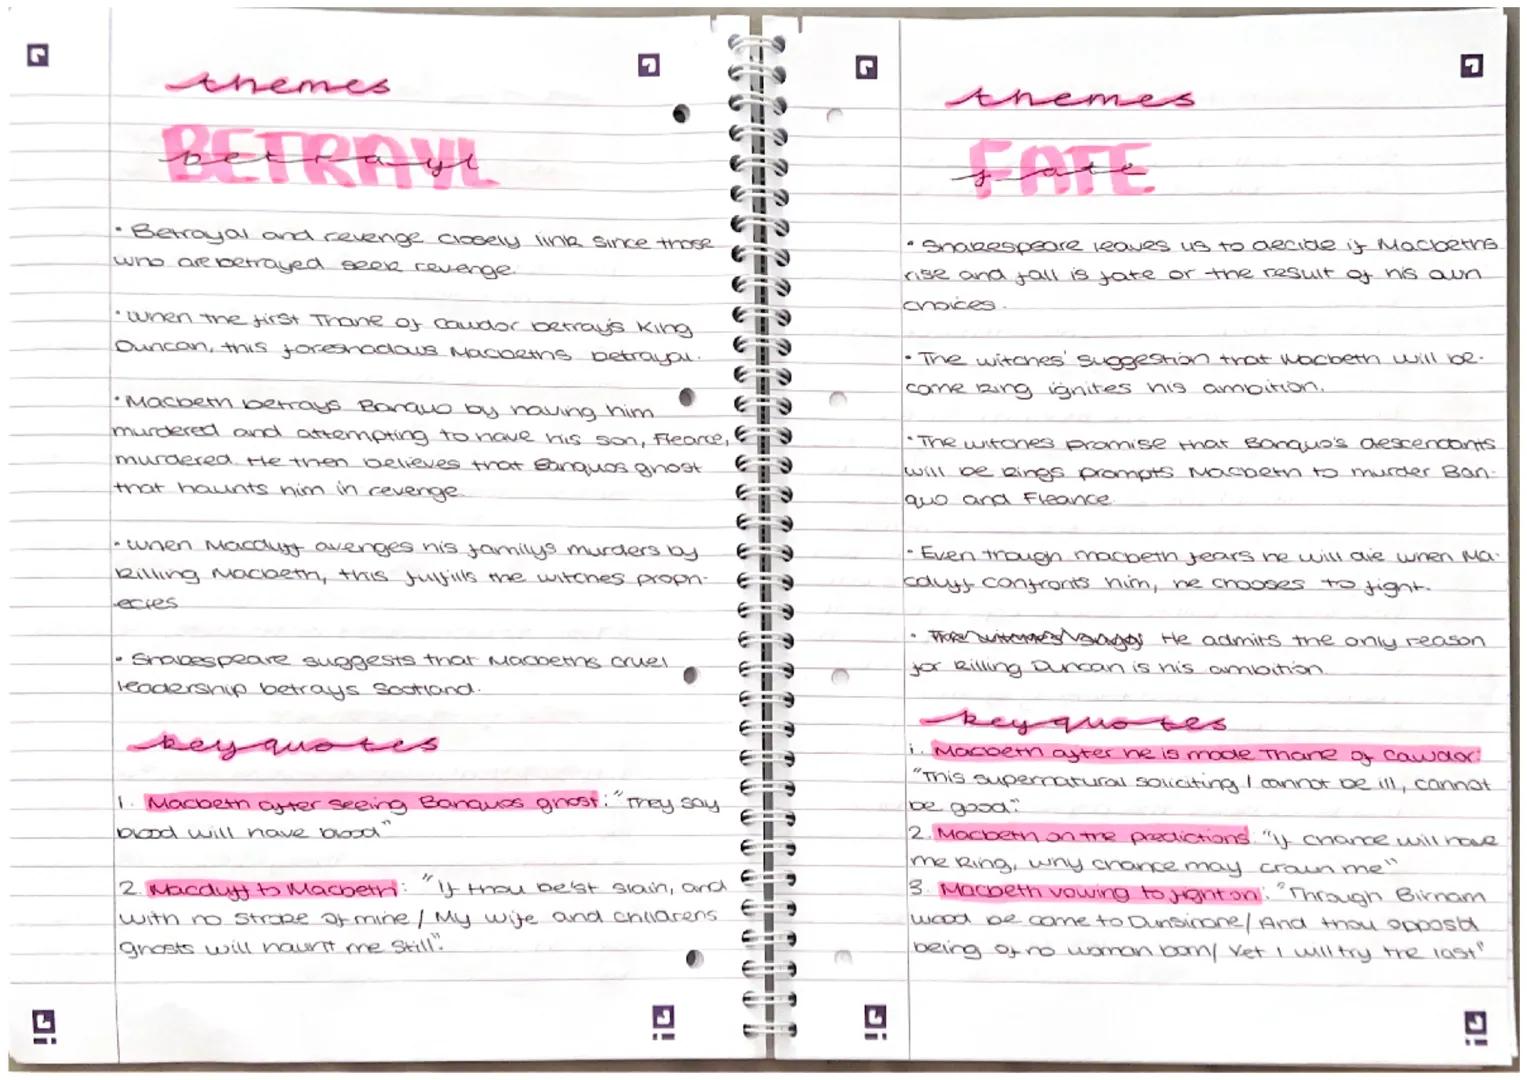 themes
BETRAYL
betrayl
• Betrayal and revenge closely link since those
who are betrayed seek revenge.
• When the first Thane of Cawdor betray's King
Duncan, this foreshadows Macbeths betrayal.
• Macbeth betrays Banquo by having him
murdered and attempting to have his son, Fleance,
murdered. He then believes that Banquos ghost
that haunts him in revenge.
• When Macduff avenges his familys murders by
killing Macbeth, this fulfills the witches proph-
ecies
• Shakespeare suggests that Macbeths cruel
leadership betrays Scotland.
key quotes
1. Macbeth after seeing Banquos ghost: "They say
blood will have blood"
2. Macduff to Macbeth: "If thou be'st slain, and
with no stroke of mine / My wife and childrens
ghosts will haunt me still".
themes
FATE
fate
• Shakespeare leaves us to decide if Macbeths
rise and fall is fate or the result of his own
choices.
• The witches' suggestion that Macbeth will be-
come king ignites his ambition.
• The witches promise that Banquo's descendants
will be kings prompts Macbeth to murder Ban-
quo and Fleance
• Even though macbeth fears he will die when Ma-
cduff confronts him, he chooses to fight.
• He admits the only reason
for killing Duncan is his ambition.
key quotes
1. Macbeth after he is made Thane of Cawdor:
"This supernatural soliciting / cannot be ill, cannot
be good".
2. Macbeth on the predictions. "If chance will have
me king, why chance may crown me"
3. Macbeth vowing to fight on: "Through Birnam
wood be come to Dunsinane/ And thou oppos'd
being of no woman born/ Yet I will try the last"